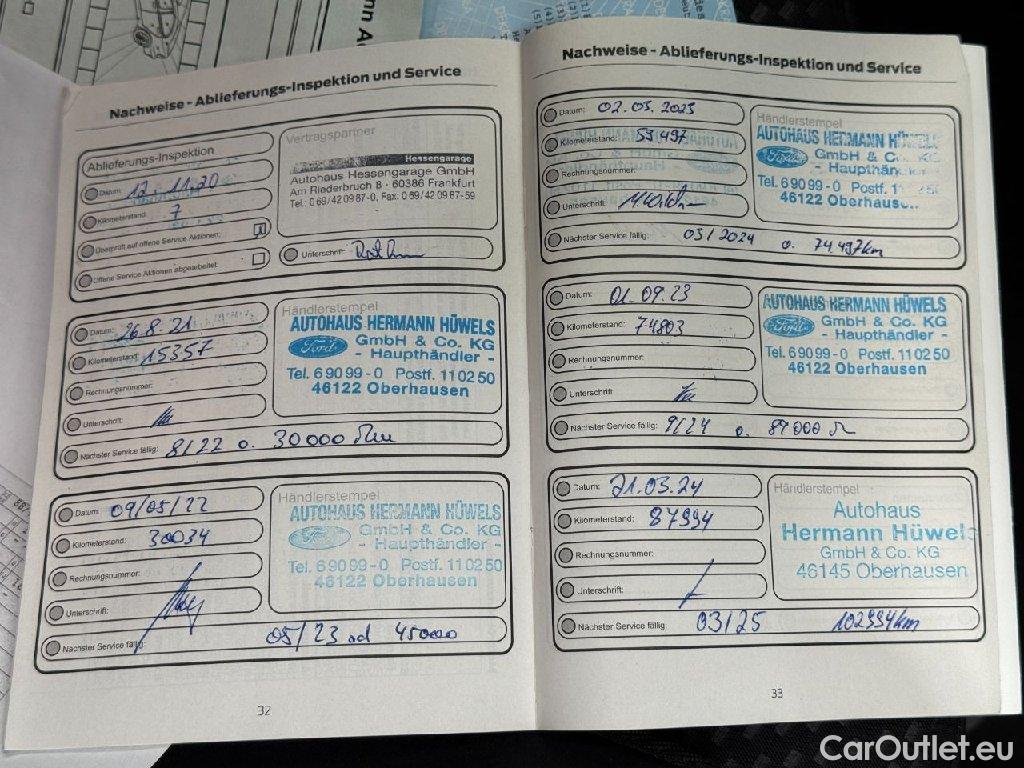 Nachweise - Ablieferungs-Inspektion und Service
Ablieferungs-Inspektion
Datum: 12.11.20
Kilometerstand: 7
Überprüft auf offene Service Aktionen: X
Offene Service Aktionen abgearbeitet:
Vertragspartner
Hessengarage
Autohaus Hessengarage GmbH
Am Riederbruch 8 · 60386 Frankfurt
Tel. 0 69/42 09 87-0, Fax. 0 69/42 09 87-59
Unterschrift:
Datum: 26.8.21
Kilometerstand: 15357
Rechnungsnummer:
Unterschrift:
Nächster Service fällig: 8/22 o. 30000 km
Händlerstempel
AUTOHAUS HERMANN HÜWELS
Ford
GmbH & Co. KG
- Haupthändler -
Tel. 6 90 99 - 0 Postf. 11 02 50
46122 Oberhausen
Datum: 09/05/22
Kilometerstand: 30034
Rechnungsnummer:
Unterschrift:
Nächster Service fällig: 05/23 od 45000
Händlerstempel
AUTOHAUS HERMANN HÜWELS
Ford
GmbH & Co. KG
- Haupthändler -
Tel. 6 90 99 - 0 Postf. 11 02 50
46122 Oberhausen
32
Nachweise - Ablieferungs-Inspektion und Service
Datum: 02.03.2023
Kilometerstand: 59,497
Rechnungsnummer:
Unterschrift:
Nächster Service fällig: 03/2024 o. 74.497km
Händlerstempel
AUTOHAUS HERMANN HÜWELS
Ford
GmbH & Co. KG
- Haupthän
Tel. 6 90 99 - 0 Postf. 1
46122 Oberhaus
Datum: 01.09.23
Kilometerstand: 74803
Rechnungsnummer:
Unterschrift:
Nächster Service fällig: 9/24 o. 89000
AUTOHAUS HERMANN HÜWELS
Ford
GmbH & Co. KG
- Haupthändler -
Tel. 6 90 99 - 0 Postf. 11 02 50
46122 Oberhausen
Datum: 21.03.24
Kilometerstand: 87994
Rechnungsnummer:
Unterschrift:
Nächster Service fällig: 03/25 102994km
Händlerstempel
Autohaus
Hermann Hüwels
GmbH & Co. KG
46145 Oberhausen
33
CarOutlet.eu